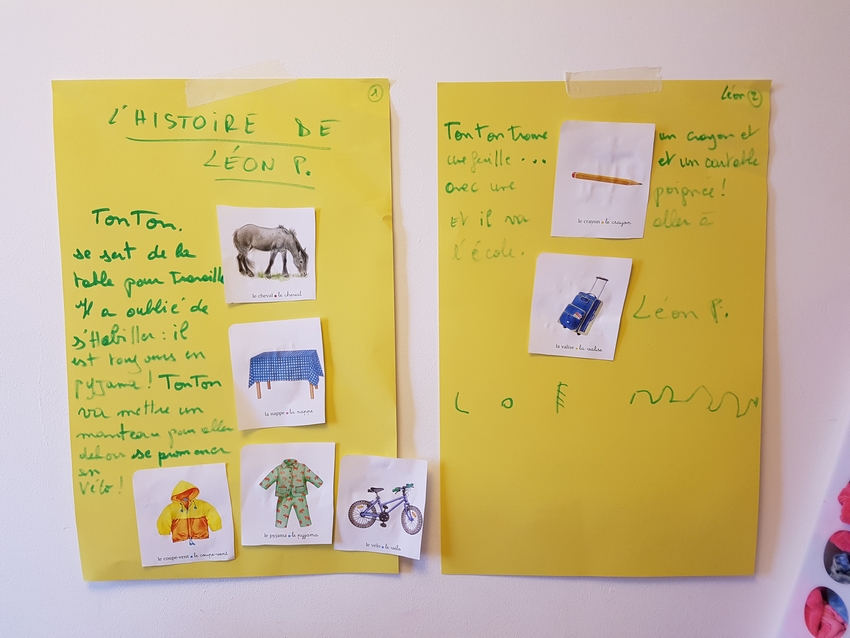 1
L'HISTOIRE DE
LÉON P.
TonTon.
se sert de la
table pour Travaille
Il a oublié de
s'Habiller : il
est toujours en
pyjama ! TonTon
va mettre un
manteau pour aller
dehors se promener
en
Vélo !
le cheval • le cheval
la nappe • la nappe
le coupe-vent • le coupe-vent
le pyjama • le pyjama
le vélo • le vélo
Léon (2)
TonTon trouve un crayon et
une feuille ... et un cartable
avec une poignée !
et il va aller à
l'école.
le crayon • le crayon
la valise • la valise
Léon P.
L o E